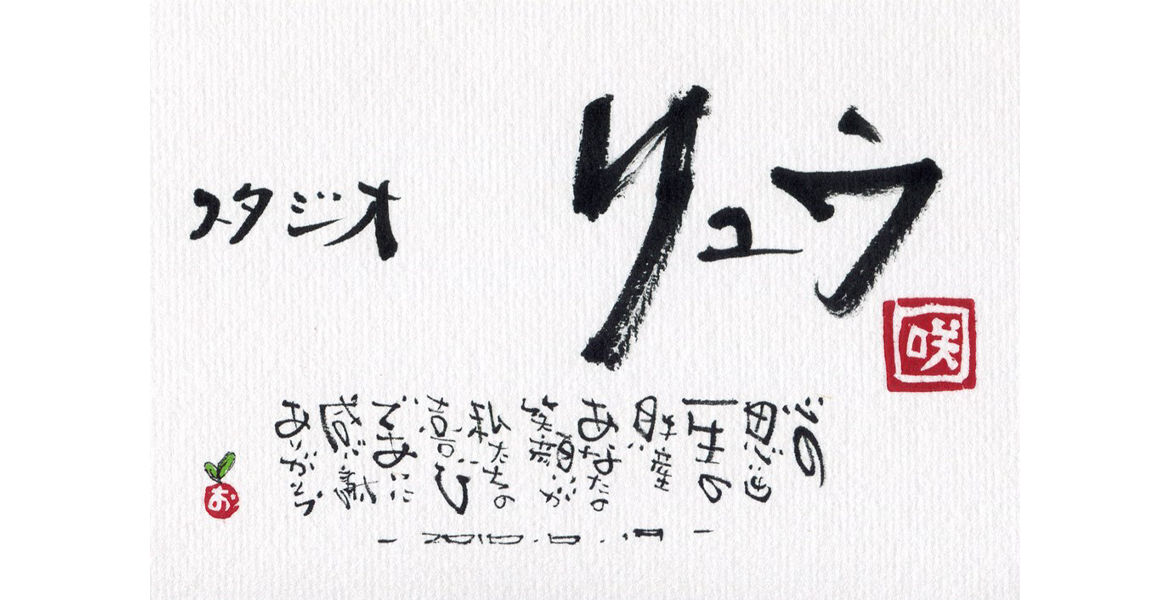 スタジオ
リュウ
咲
心の
思い出
一生の
財産
あなたの
笑顔が
私たちの
喜び
であいに
感謝
ありがとう
お